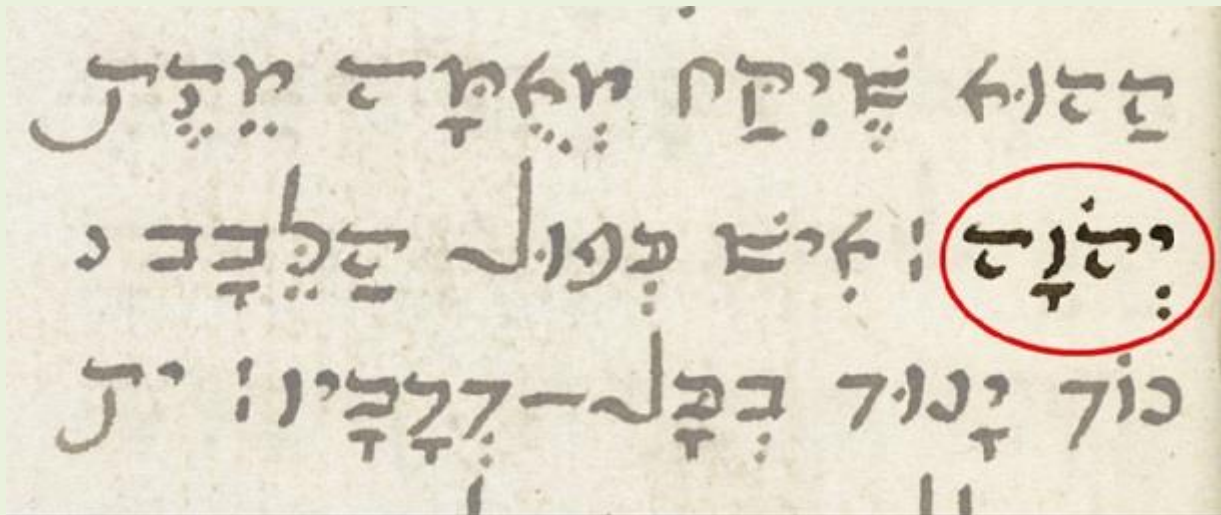 הַהוּא שֶׁיִקַּח מְאֳמָּה מֵנֶת
יְהֹוָה : אִישׁ כְפוּל הַלֵּבָב נ
בוֹך יָנוּד בְּכָל־דְרָכָיו : ית